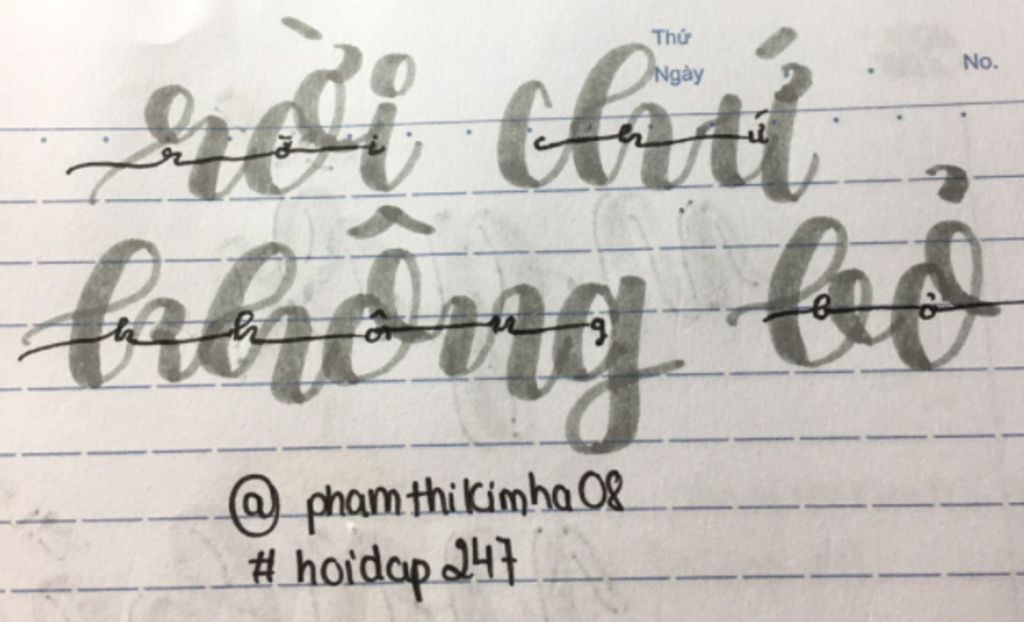 Thứ
Ngày
No.
rời chứ
rời chứ
không bỏ
không bỏ
@ phamthikimha08
# hoidap 247